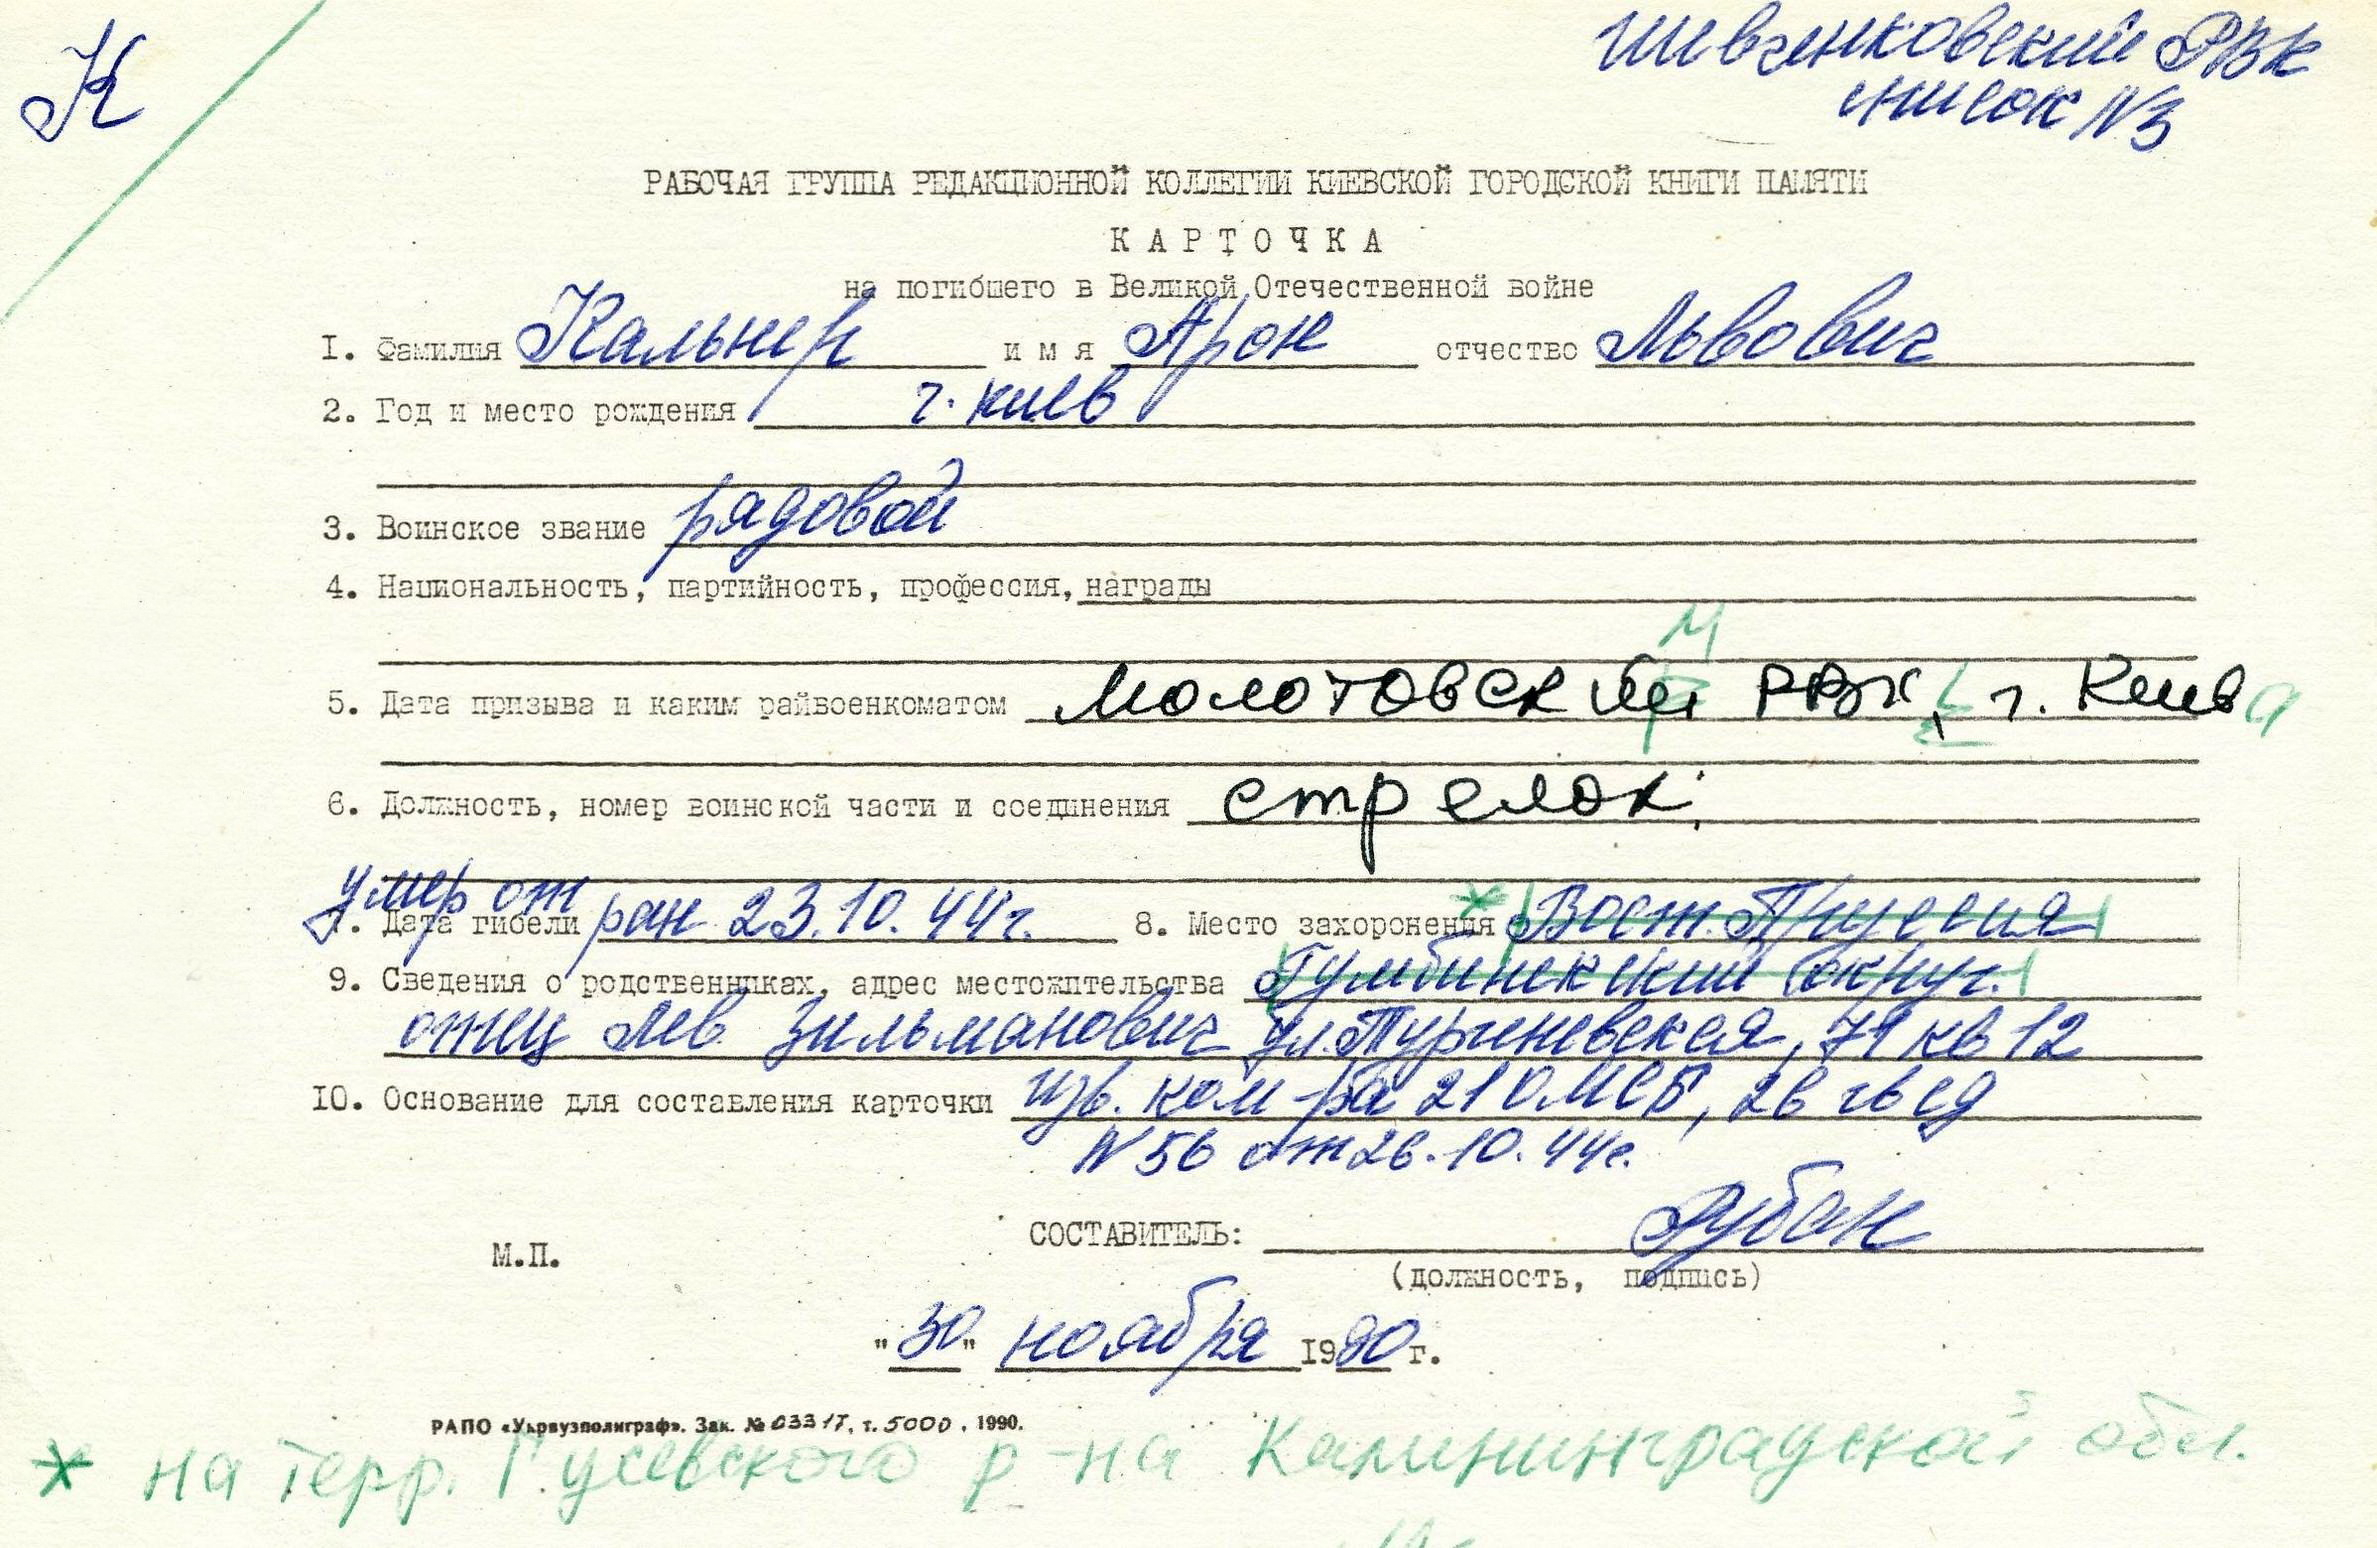 К
Шевченковский РВК
список N3
РАБОЧАЯ ГРУППА РЕДАКЦИОННОЙ КОЛЛЕГИИ КИЕВСКОЙ ГОРОДСКОЙ КНИГИ ПАМЯТИ
КАРТОЧКА
на погибшего в Великой Отечественной войне
I. Фамилия Кальнер имя Арон отчество Львович
2. Год и место рождения г. Киев
3. Воинское звание рядовой
4. Национальность, партийность, профессия, награды
5. Дата призыва и каким райвоенкоматом Молотовский РВК, г. Киева
6. Должность, номер воинской части и соединения стрелок,
7. Дата гибели умер от ран 23.10.44г. 8. Место захоронения * Вост. Пруссия
Гумбиненский округ.
9. Сведения о родственниках, адрес местожительства
отец Лев Зильманович ул. Тургеневская, 79 кв 12
IO. Основание для составления карточки изв. ком-ра 210 МСБ, 26 гв сд
N 56 от 26.10.44г.
СОСТАВИТЕЛЬ: Рубан
М.П.
(должность, подпись)
"30" ноября 1990 г.
РАПО «Укрвузполиграф». Зак. № 0331Т, т. 5000, 1990.
* на терр. Гусевского р-на Калининградской обл.